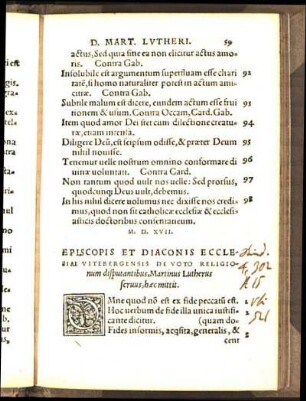 D. MART. LVTHERI. 59
actus, Sed quia sine ea non elicitur actus amo
ris. Contra Gab.
Insolubile est argumentum superfluam esse chari 92
tatē, si homo naturaliter potest in actum ami
citiæ. Contra Gab.
Subtile malum est dicere, eundem actum esse frui 93
tionem & usum. Contra Occam, Card. Gab.
Item quod amor Dei stet cum dilectione creatu- 94
ræ, etiam intensa.
Diligere Deū, est seipsum odisse, & præter Deum 95
nihil nouisse.
Tenemur uelle nostrum omnino conformare di 96
uinæ uoluntati. Contra Card.
Non tantum quod uult nos uelle: Sed prorsus, 97
quodcunq; Deus uult, debemus.
In his nihil dicere uolumus nec dixisse nos credi 98
mus, quod non sit catholicæ ecclesiæ & ecclesi-
asticis doctoribus consentaneum.
M. D. XVII.
EPISCOPIS ET DIACONIS ECCLE
SIAE VITEBERGENSIS DE VOTO RELIGIO
num disputantibus, Martinus Lutherus
seruus, hæc mittit.
OMne quod nō est ex fide peccatū est. 1
Hoc uerbum de fide illa unica iustifi- 2
cante dicitur. (quam do-
Fides informis, acqsita, generalis, & 3
cent